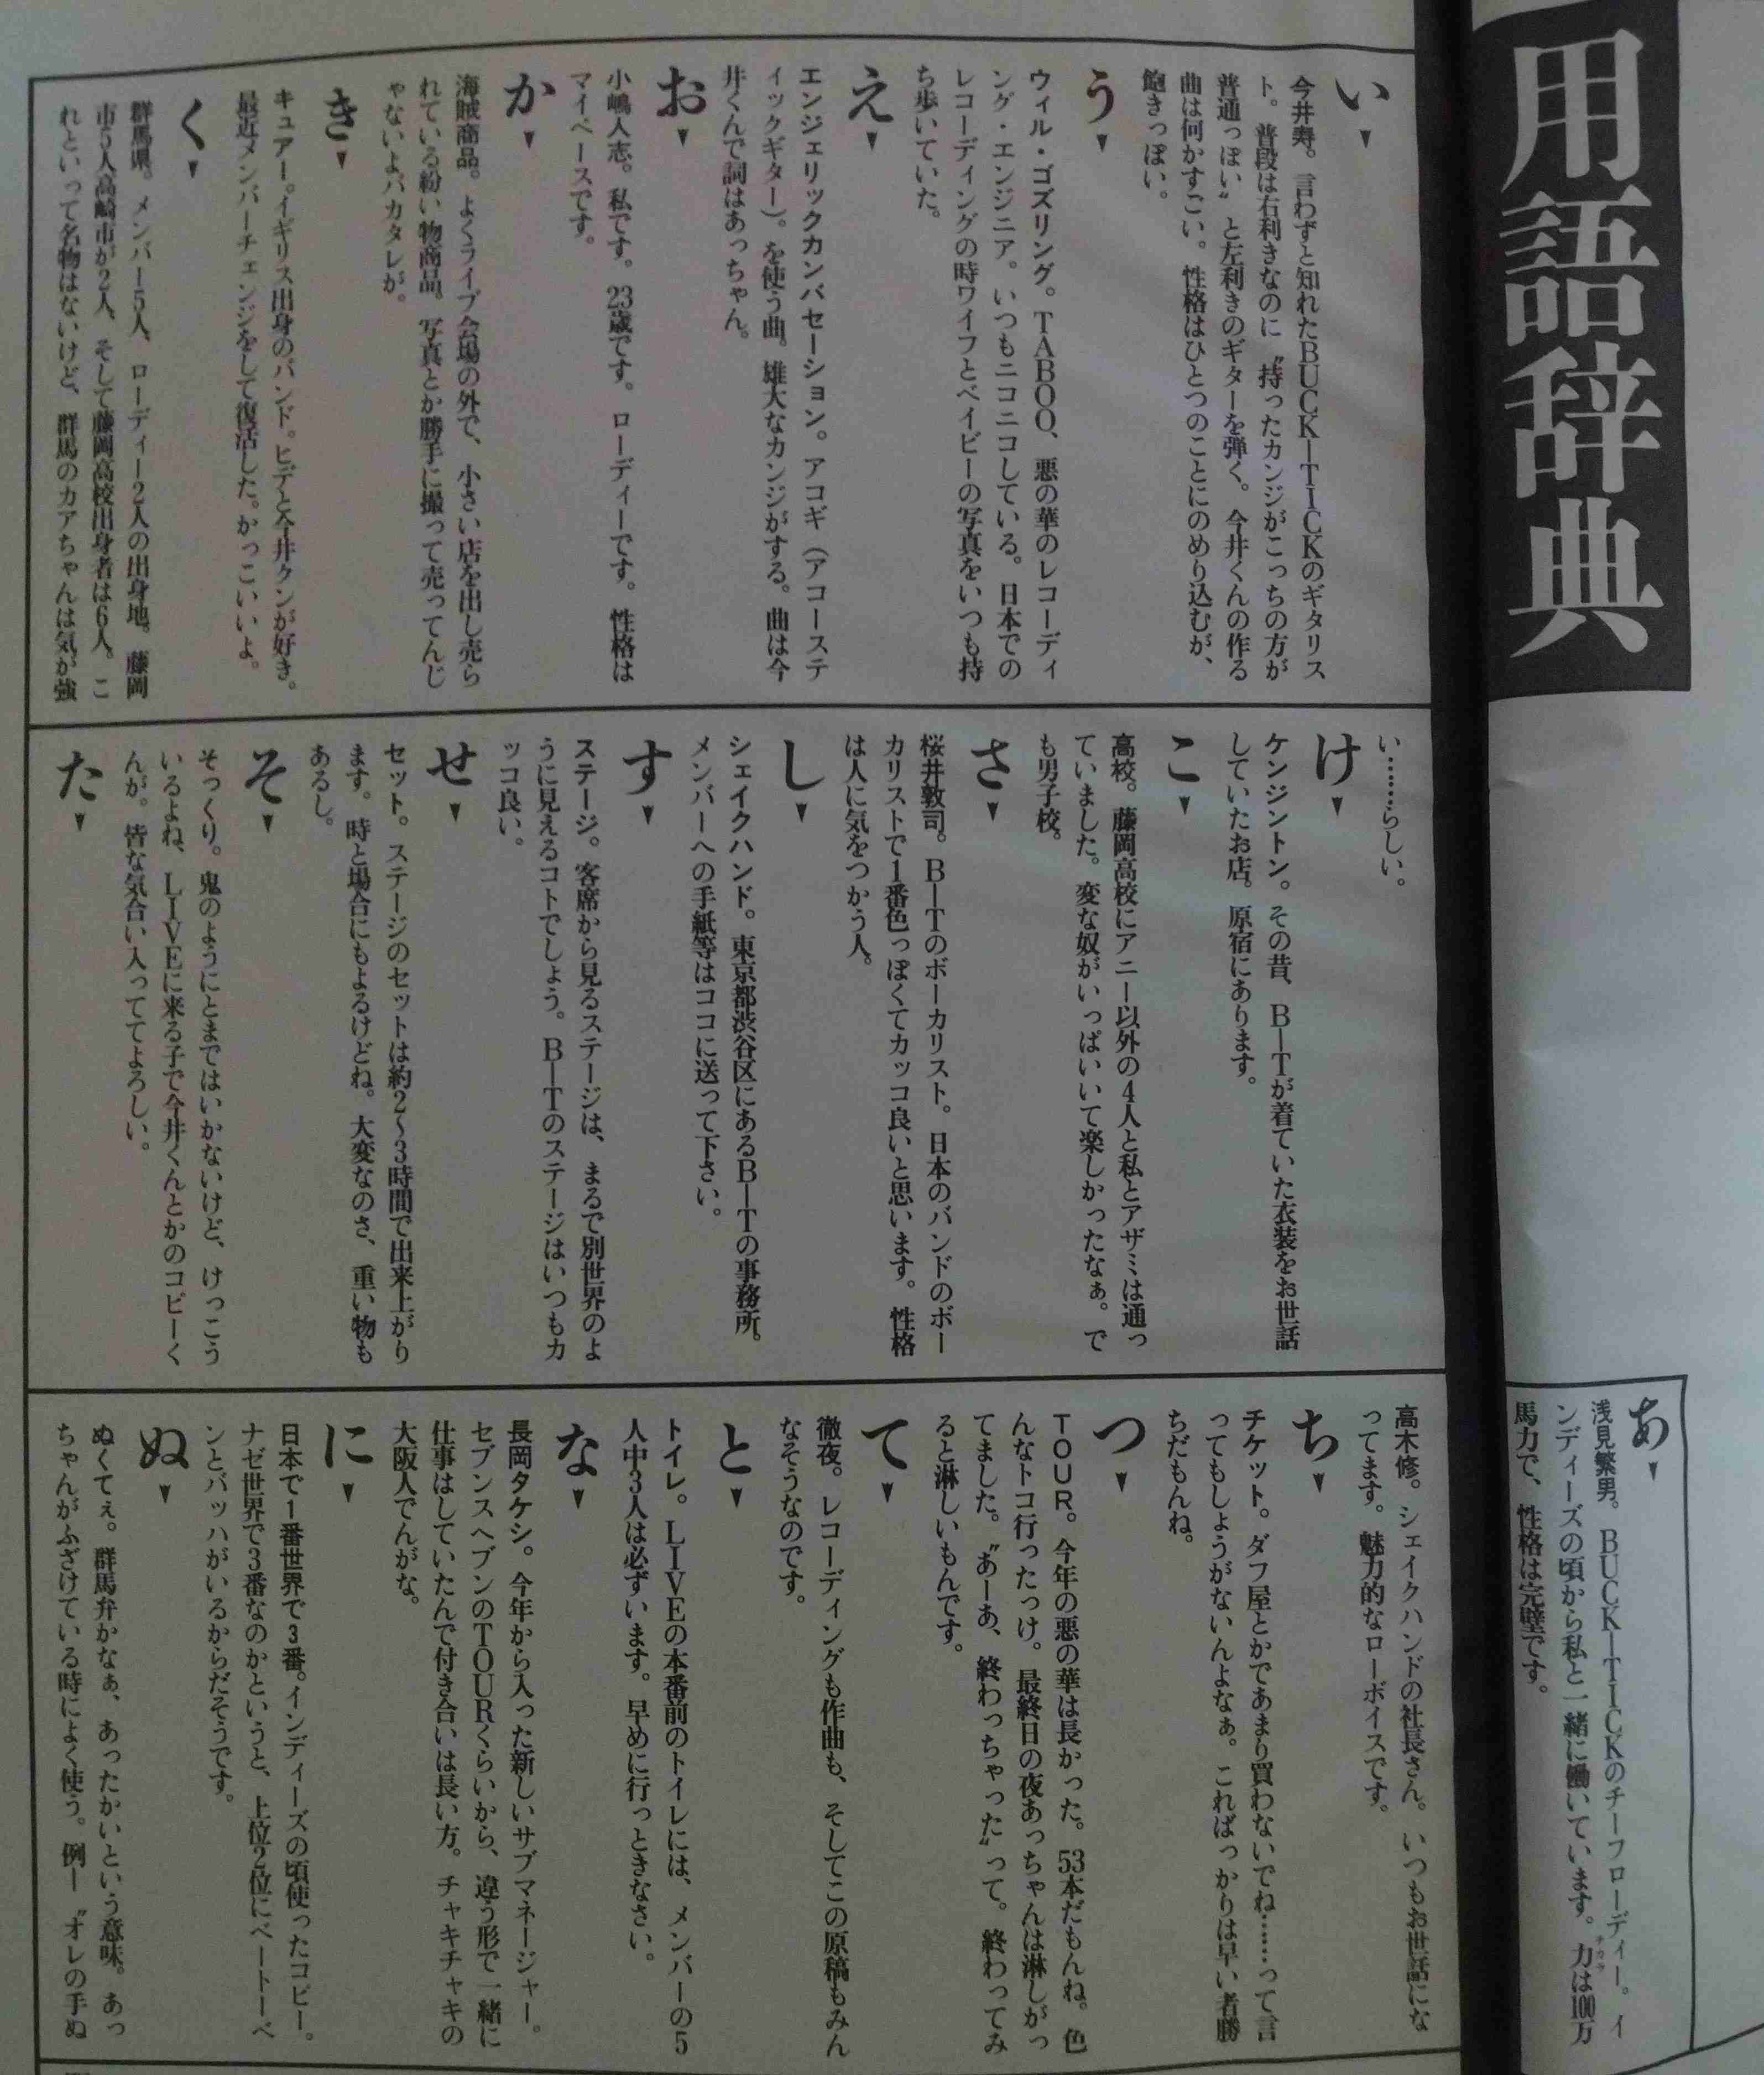 用語辞典
あ▼
浅見繁男。BUCK―TICKのチーフローディー。イ
ンディーズの頃から私と一緒に働いています。力は100万
チカラ
馬力で、性格は完璧です。
い▼
今井寿。言わずと知れたBUCK―TICKのギタリス
ト。普段は右利きなのに〝持ったカンジがこっちの方が
普通っぽい〟と左利きのギターを弾く。今井くんの作る
曲は何かすごい。性格はひとつのことにのめり込むが、
飽きっぽい。
う▼
ウィル・ゴズリング。TABOO、悪の華のレコーディ
ング・エンジニア。いつもニコニコしている。日本での
レコーディングの時ワイフとベイビーの写真をいつも持
ち歩いていた。
え▼
エンジェリックカンバセーション。アコギ（アコーステ
ィックギター）。を使う曲。雄大なカンジがする。曲は今
井くんで詞はあっちゃん。
お▼
小嶋人志。私です。23歳です。ローディーです。性格は
マイペースです。
か▼
海賊商品。よくライブ会場の外で、小さい店を出し売ら
れている紛い物商品。写真とか勝手に撮って売ってんじ
ゃないよバカタレが。
き▼
キュアー。イギリス出身のバンド。ヒデと今井クンが好き。
最近メンバーチェンジをして復活した。かっこいいよ。
く▼
群馬県。メンバー5人、ローディー2人の出身地。藤岡
市5人高崎市が2人、そして藤岡高校出身者は6人。こ
れといって名物はないけど、群馬のカアちゃんは気が強
い……らしい。
け▼
ケンジントン。その昔、B―Tが着ていた衣装をお世話
していたお店。原宿にあります。
こ▼
高校。藤岡高校にアニー以外の4人と私とアザミは通っ
ていました。変な奴がいっぱいいて楽しかったなぁ。で
も男子校。
さ▼
桜井敦司。B―Tのボーカリスト。日本のバンドのボー
カリストで1番色っぽくてカッコ良いと思います。性格
は人に気をつかう人。
し▼
シェイクハンド。東京都渋谷区にあるB―Tの事務所。
メンバーへの手紙等はココに送って下さい。
す▼
ステージ。客席から見るステージは、まるで別世界のよ
うに見えるコトでしょう。B―Tのステージはいつもカ
ッコ良い。
せ▼
セット。ステージのセットは約2〜3時間で出来上がり
ます。時と場合にもよるけどね。大変なのさ、重い物も
あるし。
そ▼
そっくり。鬼のようにとまではいかないけど、けっこう
いるよね、LIVEに来る子で今井くんとかのコピーく
んが。皆な気合い入っててよろしい。
た▼
高木修。シェイクハンドの社長さん。いつもお世話にな
ってます。魅力的なローボイスです。
ち▼
チケット。ダフ屋とかであまり買わないでね……って言
ってもしょうがないんよなぁ。こればっかりは早い者勝
ちだもんね。
つ▼
TOUR。今年の悪の華は長かった。53本だもんね。色
んなトコ行ったっけ。最終日の夜あっちゃんは淋しがっ
てました。〝あーあ、終わっちゃった〟って。終わってみ
ると淋しいもんです。
て▼
徹夜。レコーディングも作曲も、そしてこの原稿もみん
なそうなのです。
と▼
トイレ。LIVEの本番前のトイレには、メンバーの5
人中3人は必ずいます。早めに行っときなさい。
な▼
長岡タケシ。今年から入った新しいサブマネージャー。
セブンスヘブンのTOURくらいから、違う形で一緒に
仕事はしていたんで付き合いは長い方。チャキチャキの
大阪人でんがな。
に▼
日本で1番世界で3番。インディーズの頃使ったコピー。
ナゼ世界で3番なのかというと、上位2位にベートーベ
ンとバッハがいるからだそうです。
ぬ▼
ぬくてぇ。群馬弁かなぁ、あったかいという意味。あっ
ちゃんがふざけている時によく使う。例―〝オレの手ぬ